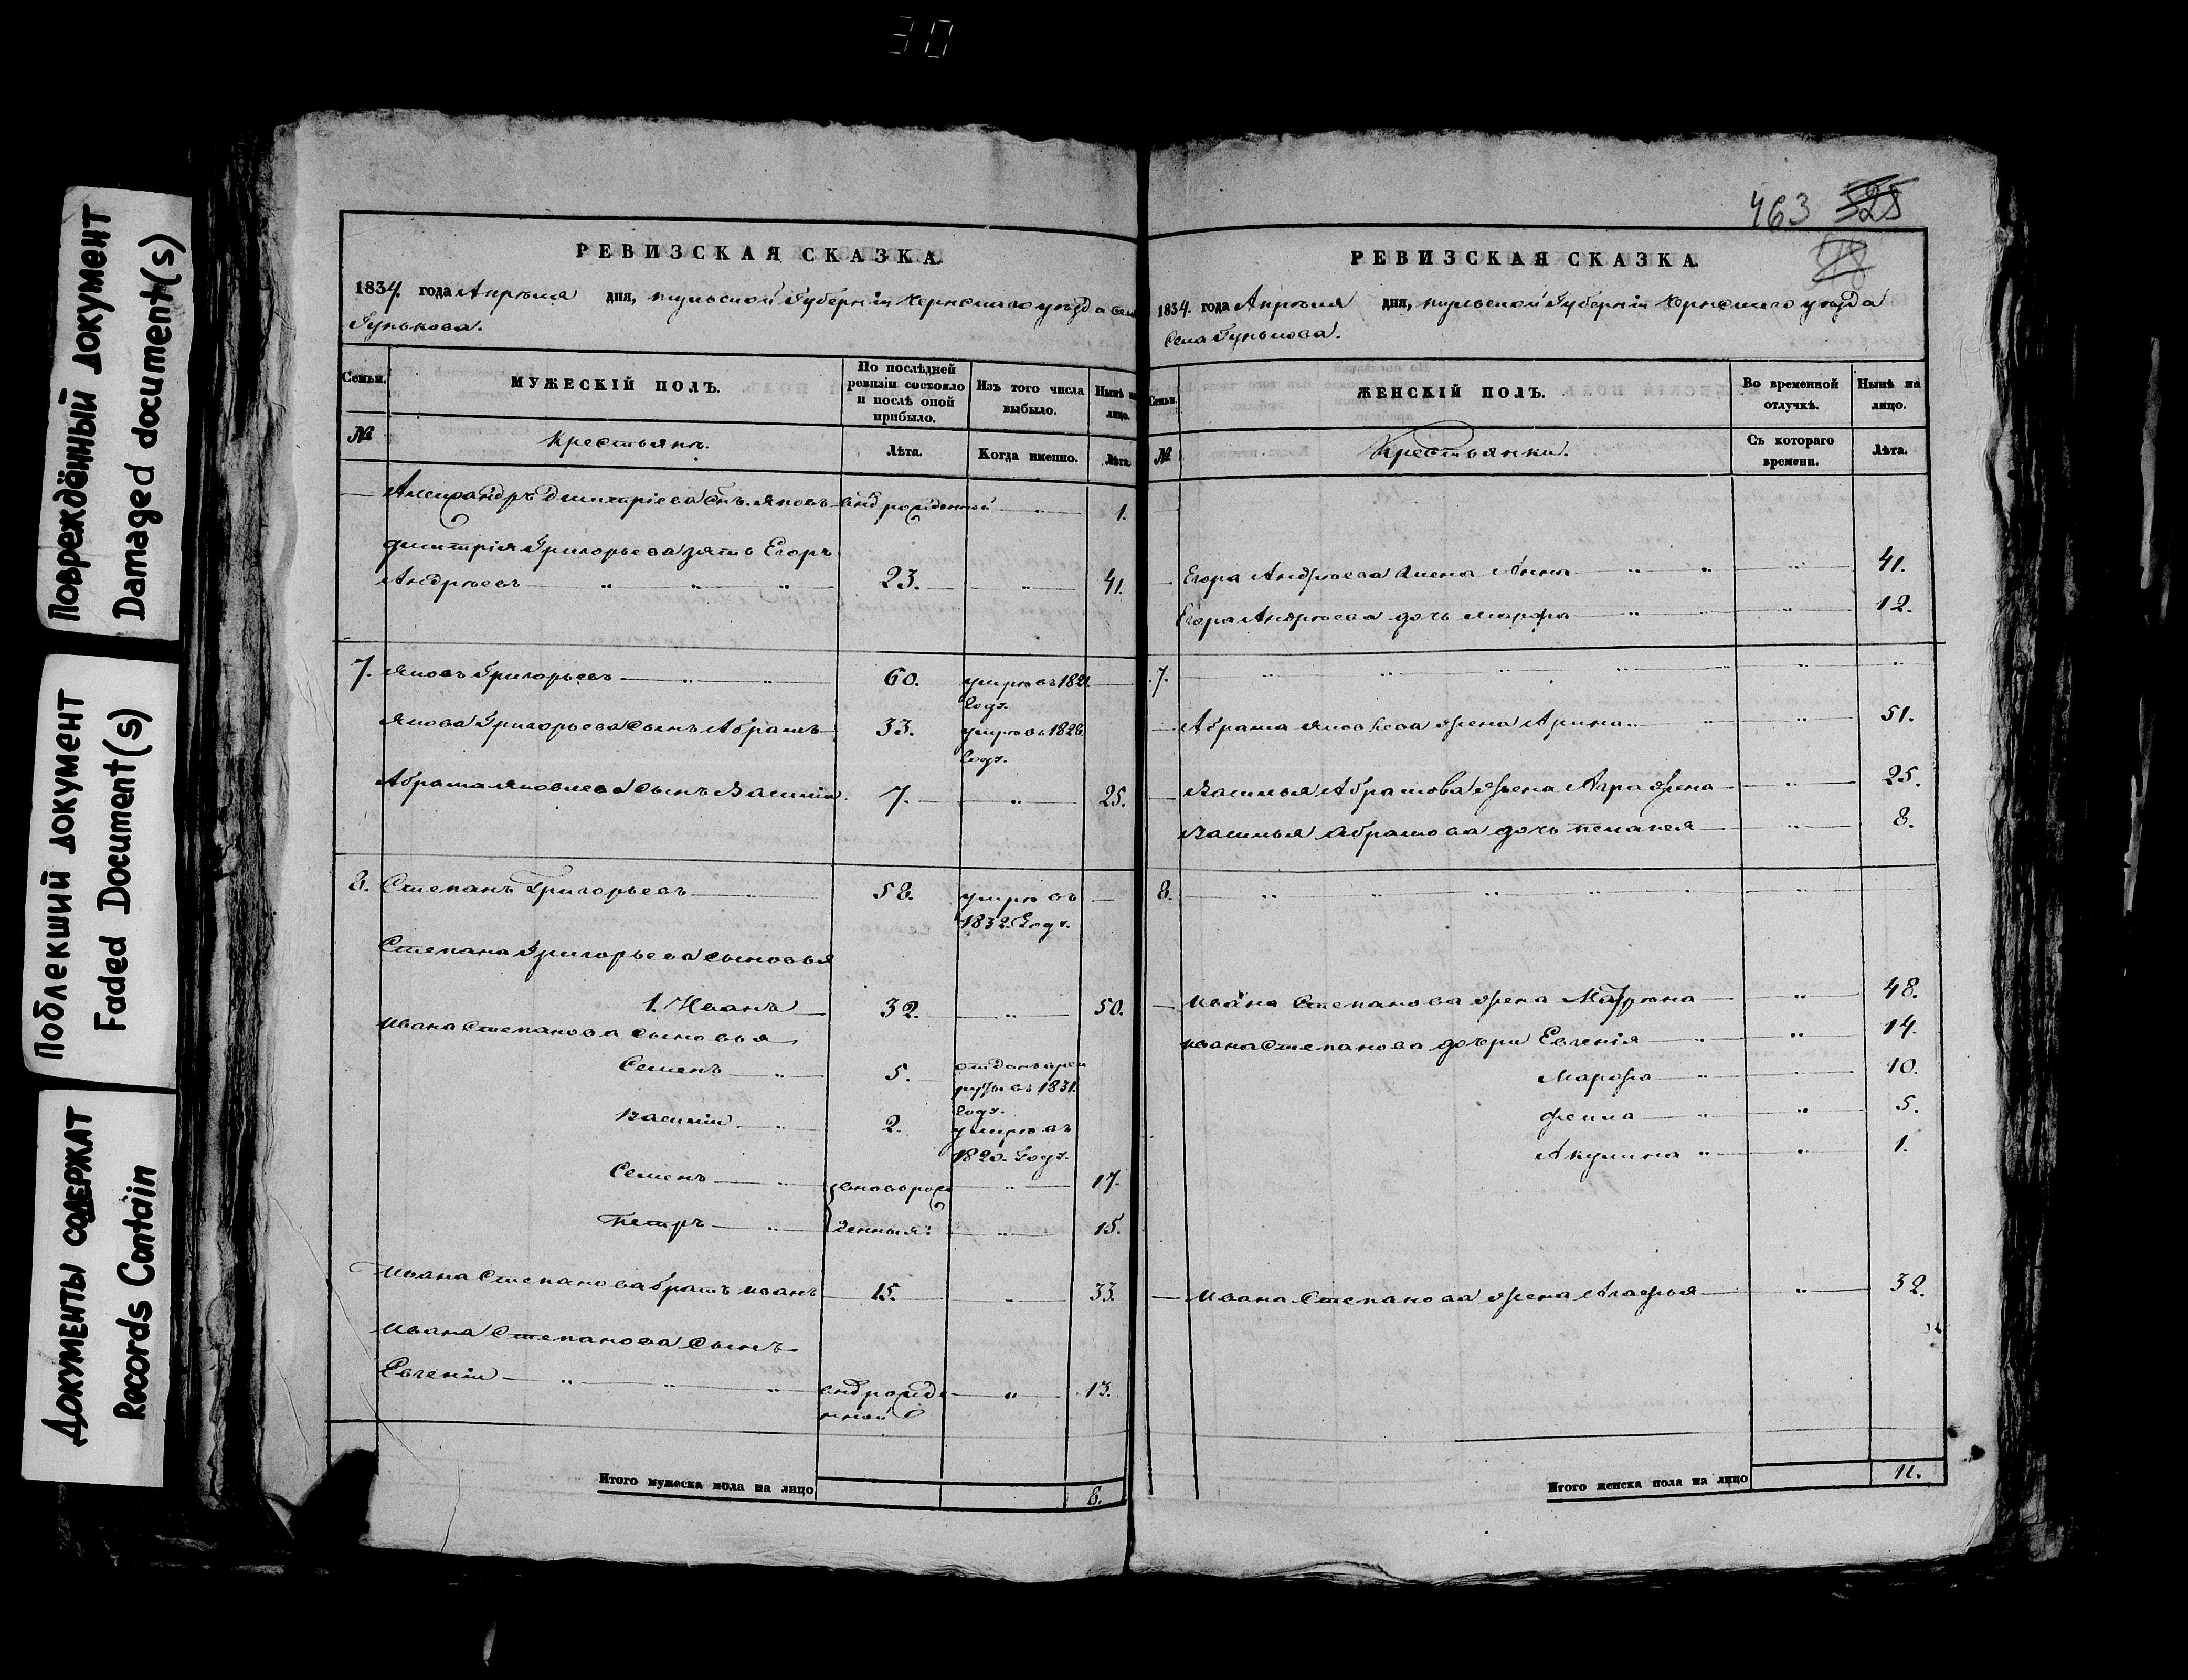 30
Повреждённый документ
Damaged document(s)
Поблекший документ
Faded Document(s)
Документы содержат
Records Contain
РЕВИЗСКАЯ СКАЗКА.
1834. года Апреля дня, тульской Губерніи Чернскаго уезда села
Гунькова.
Семьи.
МУЖЕСКІЙ ПОЛЪ.
По послѣдней
ревизіи состояло
и послѣ оной
прибыло.
Изъ того числа
выбыло.
Нынѣ на
лицо.
№
Крестьянъ.
Лѣта.
Когда именно.
Лѣта.
Александръ Дмитріева снъ. Яковъ рожденной 1.
Дмитрія Григорьева зять Егоръ
Андреевъ 23. 41.
7. Яковъ Григорьевъ 60. умре въ 1821.
годх.
Якова Григорьева сынъ Абрамъ 33. умре въ 1826.
годх.
Абрама Яковлева сынъ Василій 7. 25.
8. Степанъ Григорьевъ 58. умре въ
1832. Годх.
Степана Григорьева сыновья
1. Иванъ 32. 50.
Ивана Степанова сыновья
Семенъ 5. отданъ в рек
руты въ 1831.
годх.
Василій 2. умре въ
1820. Годх.
Семенъ вновь рож 17.
Петръ денныя: 15.
Ивана Степанова братъ Иванъ 15. 33.
Ивана Степанова сынъ
Евгеній 13.
Итого мужеска пола на лицо 8.
463 525
РЕВИЗСКАЯ СКАЗКА.
1834. года Апреля дня, тульской Губерніи Чернскаго уезда
села Гунькова.
Семьи.
ЖЕНСКІЙ ПОЛЪ.
Во временной
отлучкѣ.
Нынѣ на
лицо.
№
Крестьянки.
Съ котораго
времени.
Лѣта.
Егора Андреева жена Анна 41.
Егора Андреева дочь Марфа 12.
7.
Абрама Яковлева жена Арина 51.
Василья Абрамова жена Аграфена 25.
Василья Абрамова дочь Пелагея 8.
8.
Ивана Степанова жена Матрена 48.
Ивана Степанова дочери Евгенія 14.
Марфа 10.
Фекла 5.
Акулина 1.
Ивана Степанова жена Агафья 32.
Итого женска пола на лицо 11.